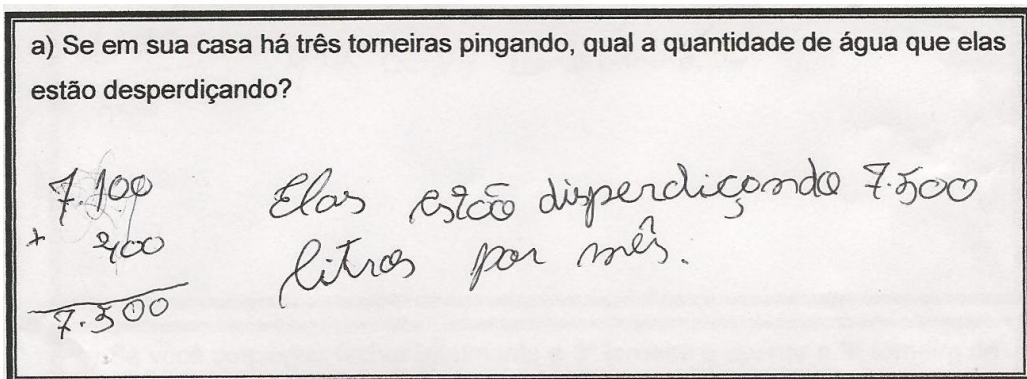 a) Se em sua casa há três torneiras pingando, qual a quantidade de água que elas
estão desperdiçando?
7.100
Elas estão disperdiçando 7.500
+ 400
litros por mês.
7.500